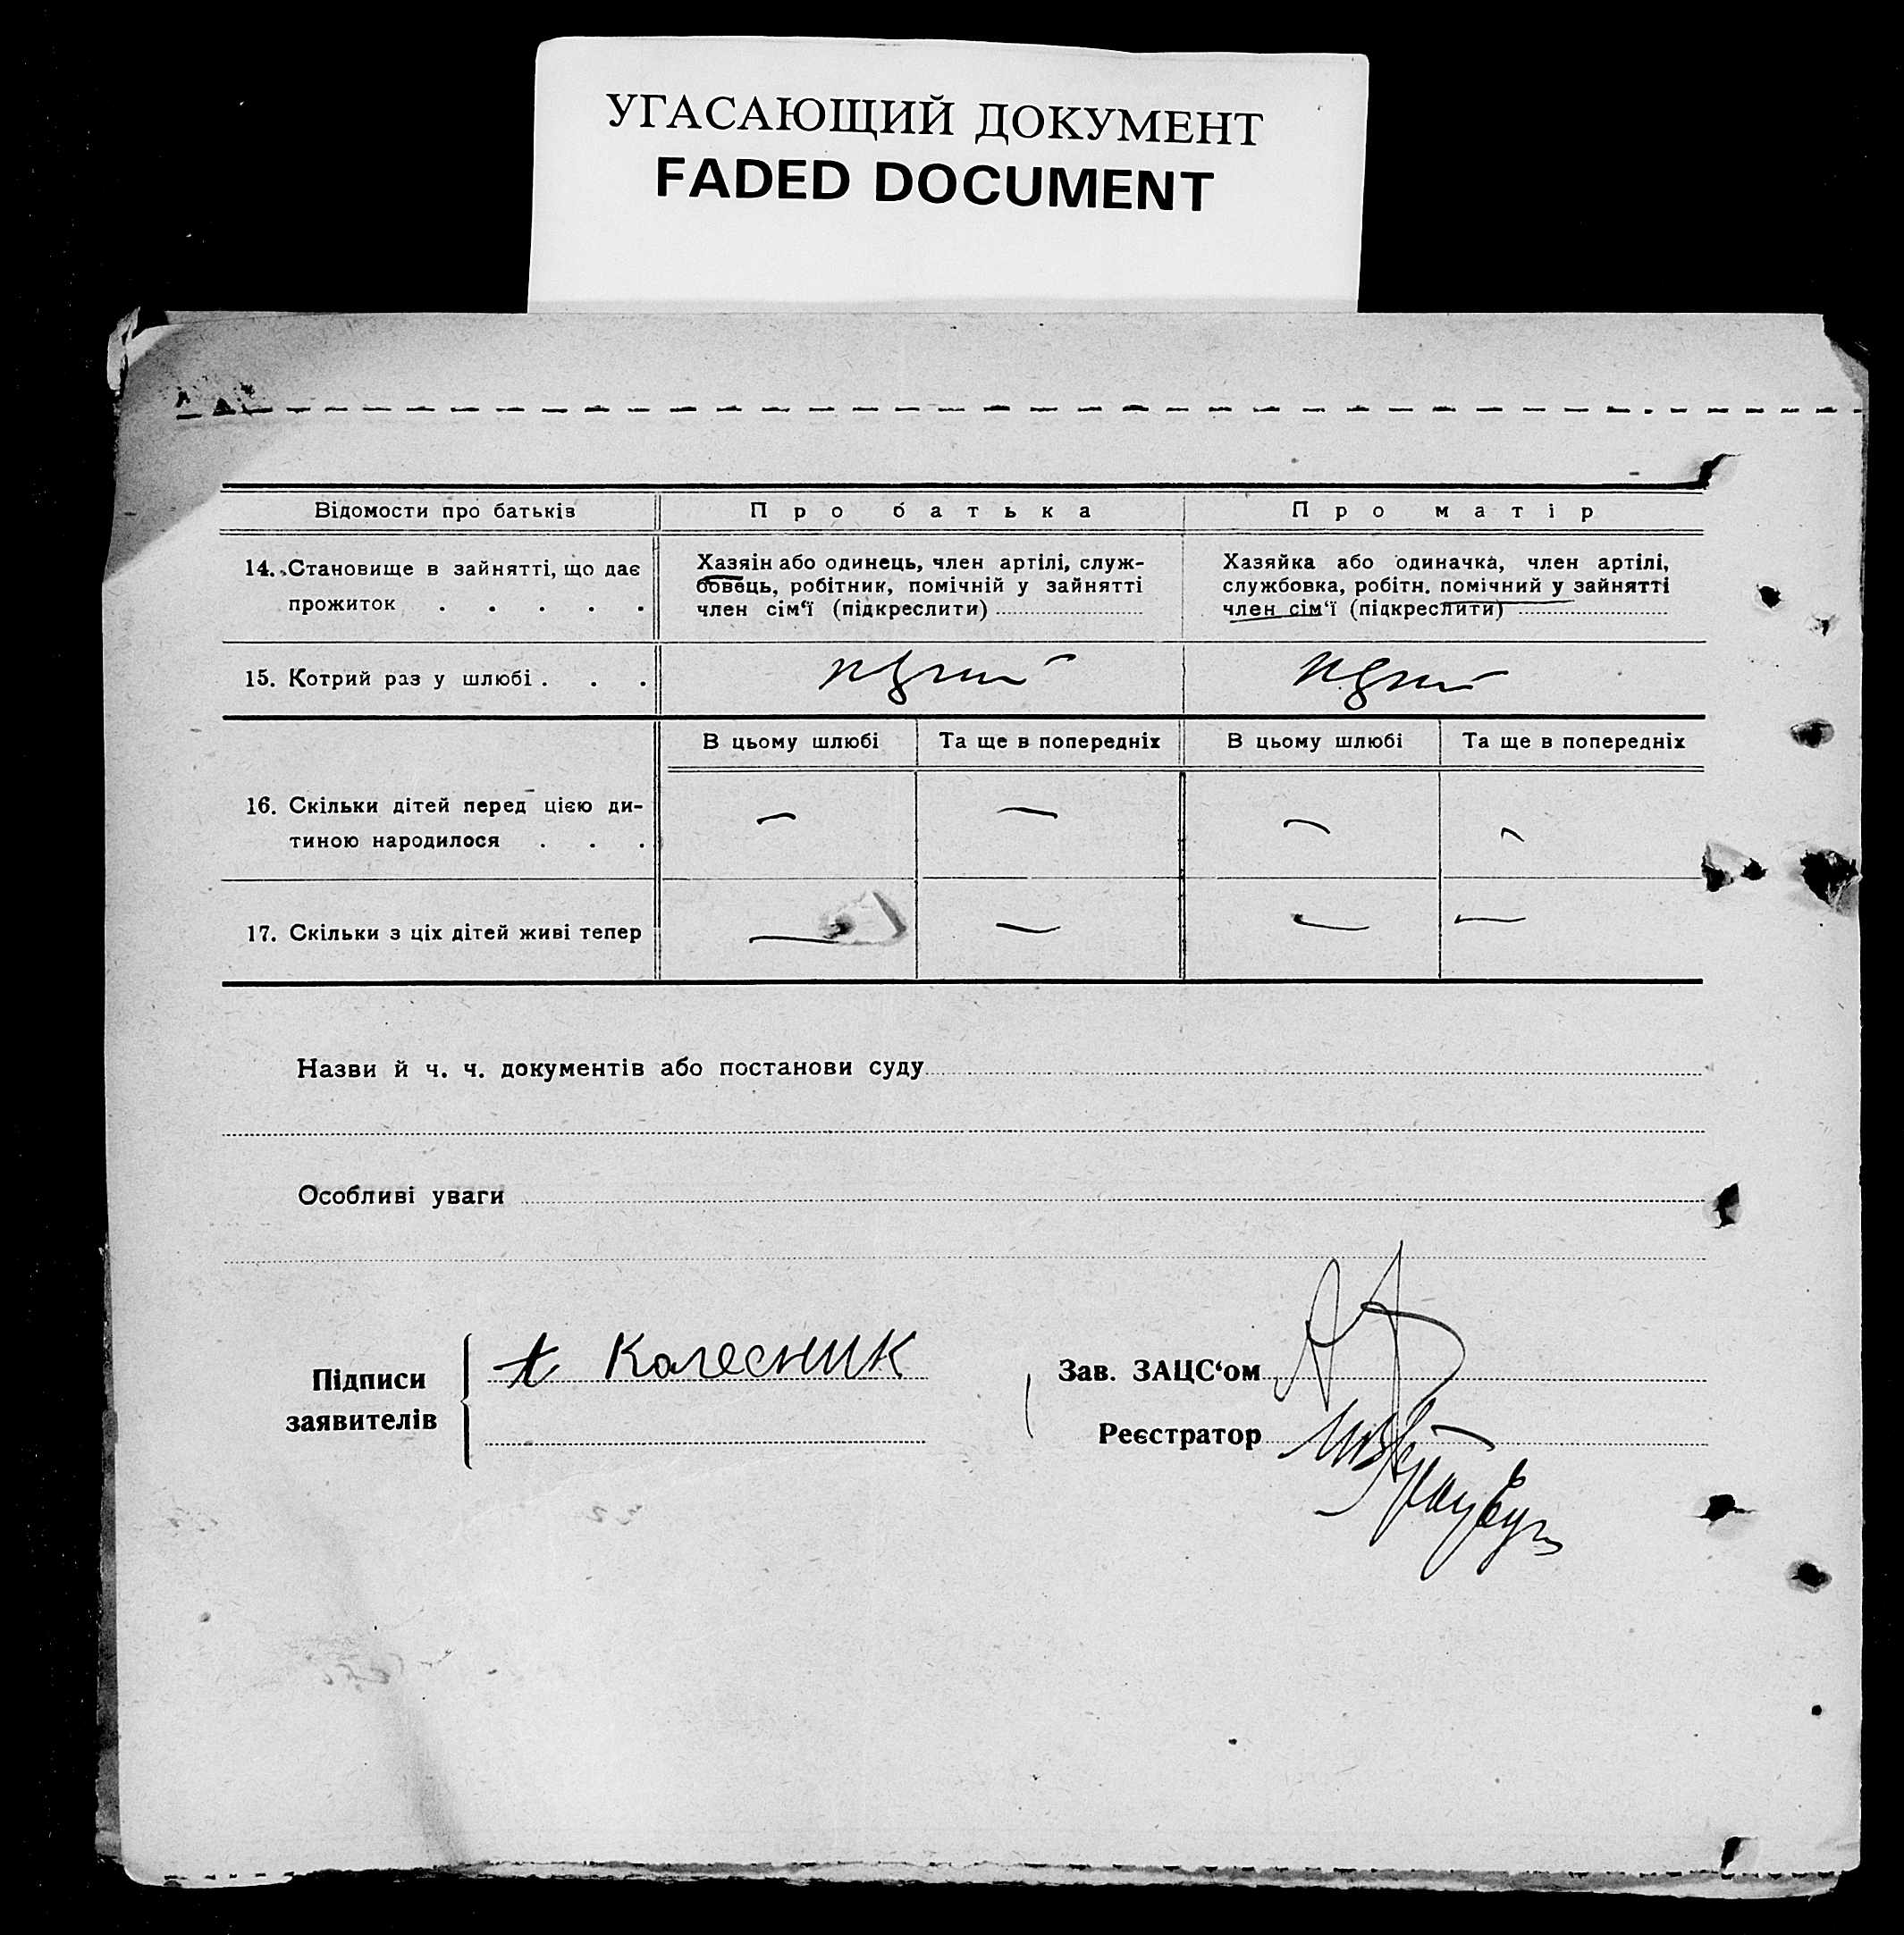 УГАСАЮЩИЙ ДОКУМЕНТ
FADED DOCUMENT
Відомости про батьків
Про батька
Про матір
14. Становище в зайнятті, що дає
прожиток . . . . .
Хазяін або одинець, член артілі, служ-
бовець, робітник, помічній у зайнятті
член сім‘ї (підкреслити)
Хазяйка або одиначка, член артілі,
службовка, робітн. помічний у зайнятті
член сім‘ї (підкреслити)
15. Котрий раз у шлюбі . . .
В цьому шлюбі
Та ще в попередніх
В цьому шлюбі
Та ще в попередніх
16. Скільки дітей перед цією ди-
тиною народилося . . .
— — — —
17. Скільки з ціх дітей живі тепер
— — — —
Назви й ч. ч. документів або постанови суду
Особливі уваги
Підписи
заявителів
Колесник
Зав. ЗАЦС‘ом
Реєстратор